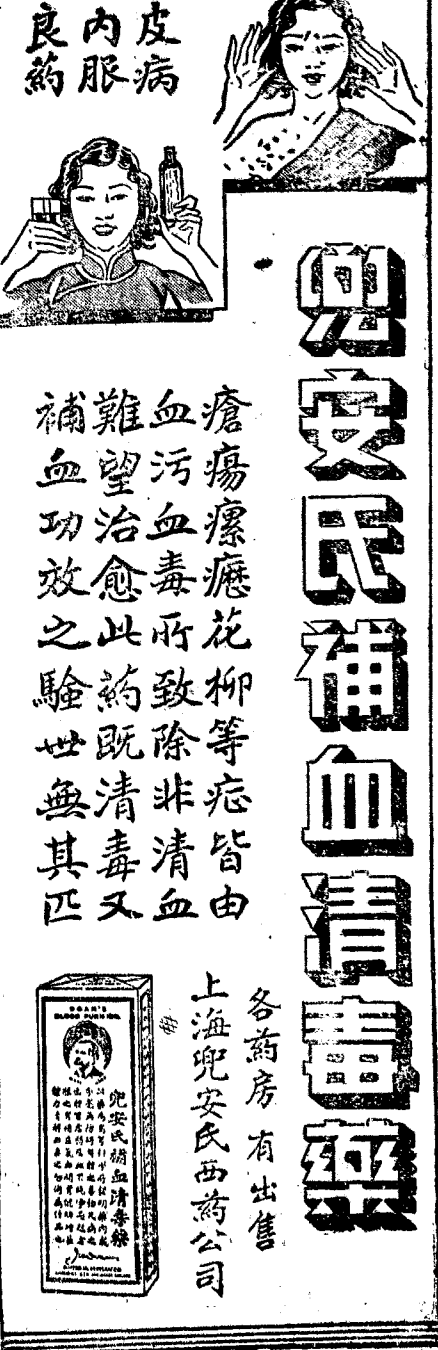 皮病
內服
良葯
兜安氏補血清毒藥
瘡瘍瘰癧花柳等症皆由
血污血毒所致除非清血
難望治愈此葯既清毒又
補血功效之驗世無其匹
各葯房有出售
上海兜安氏西葯公司
DOAN'S
兜安氏補血清毒藥